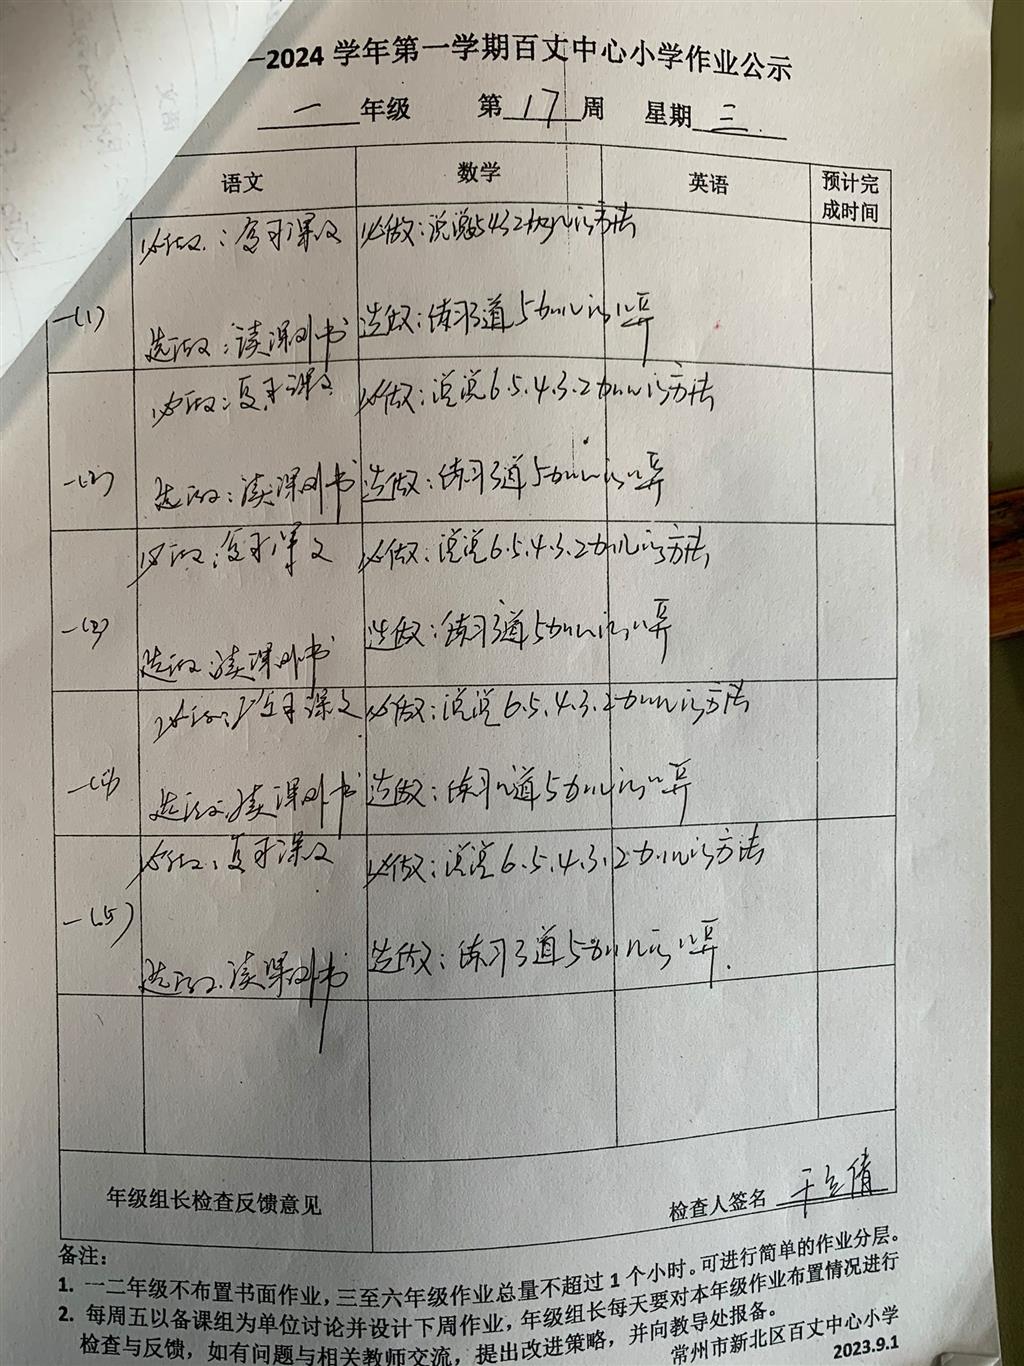 —2024 学年第一学期百丈中心小学作业公示
一 年级 第 17 周 星期 三
语文 数学 英语 预计完成时间
一(1) 必做：复习课文 必做：说说5432加几的方法
选做：读课外书 选做：练习3道5加几的口算
一(2) 必做：复习课文 必做：说说6.5.4.3.2加几的方法
选做：读课外书 选做：练习3道5加几的口算
一(3) 必做：复习课文 必做：说说6.5.4.3.2加几的方法
选做：读课外书 选做：练习3道5加几的口算
一(4) 必做：复习课文 必做：说说6.5.4.3.2加几的方法
选做：读课外书 选做：练习 道5加几的口算
一(5) 必做：复习课文 必做：说说6.5.4.3.2加几的方法
选做：读课外书 选做：练习3道5加几的口算.
年级组长检查反馈意见 检查人签名
备注：
1. 一二年级不布置书面作业，三至六年级作业总量不超过 1 个小时。可进行简单的作业分层。
2. 每周五以备课组为单位讨论并设计下周作业，年级组长每天要对本年级作业布置情况进行
检查与反馈，如有问题与相关教师交流，提出改进策略，并向教导处报备。
常州市新北区百丈中心小学
2023.9.1